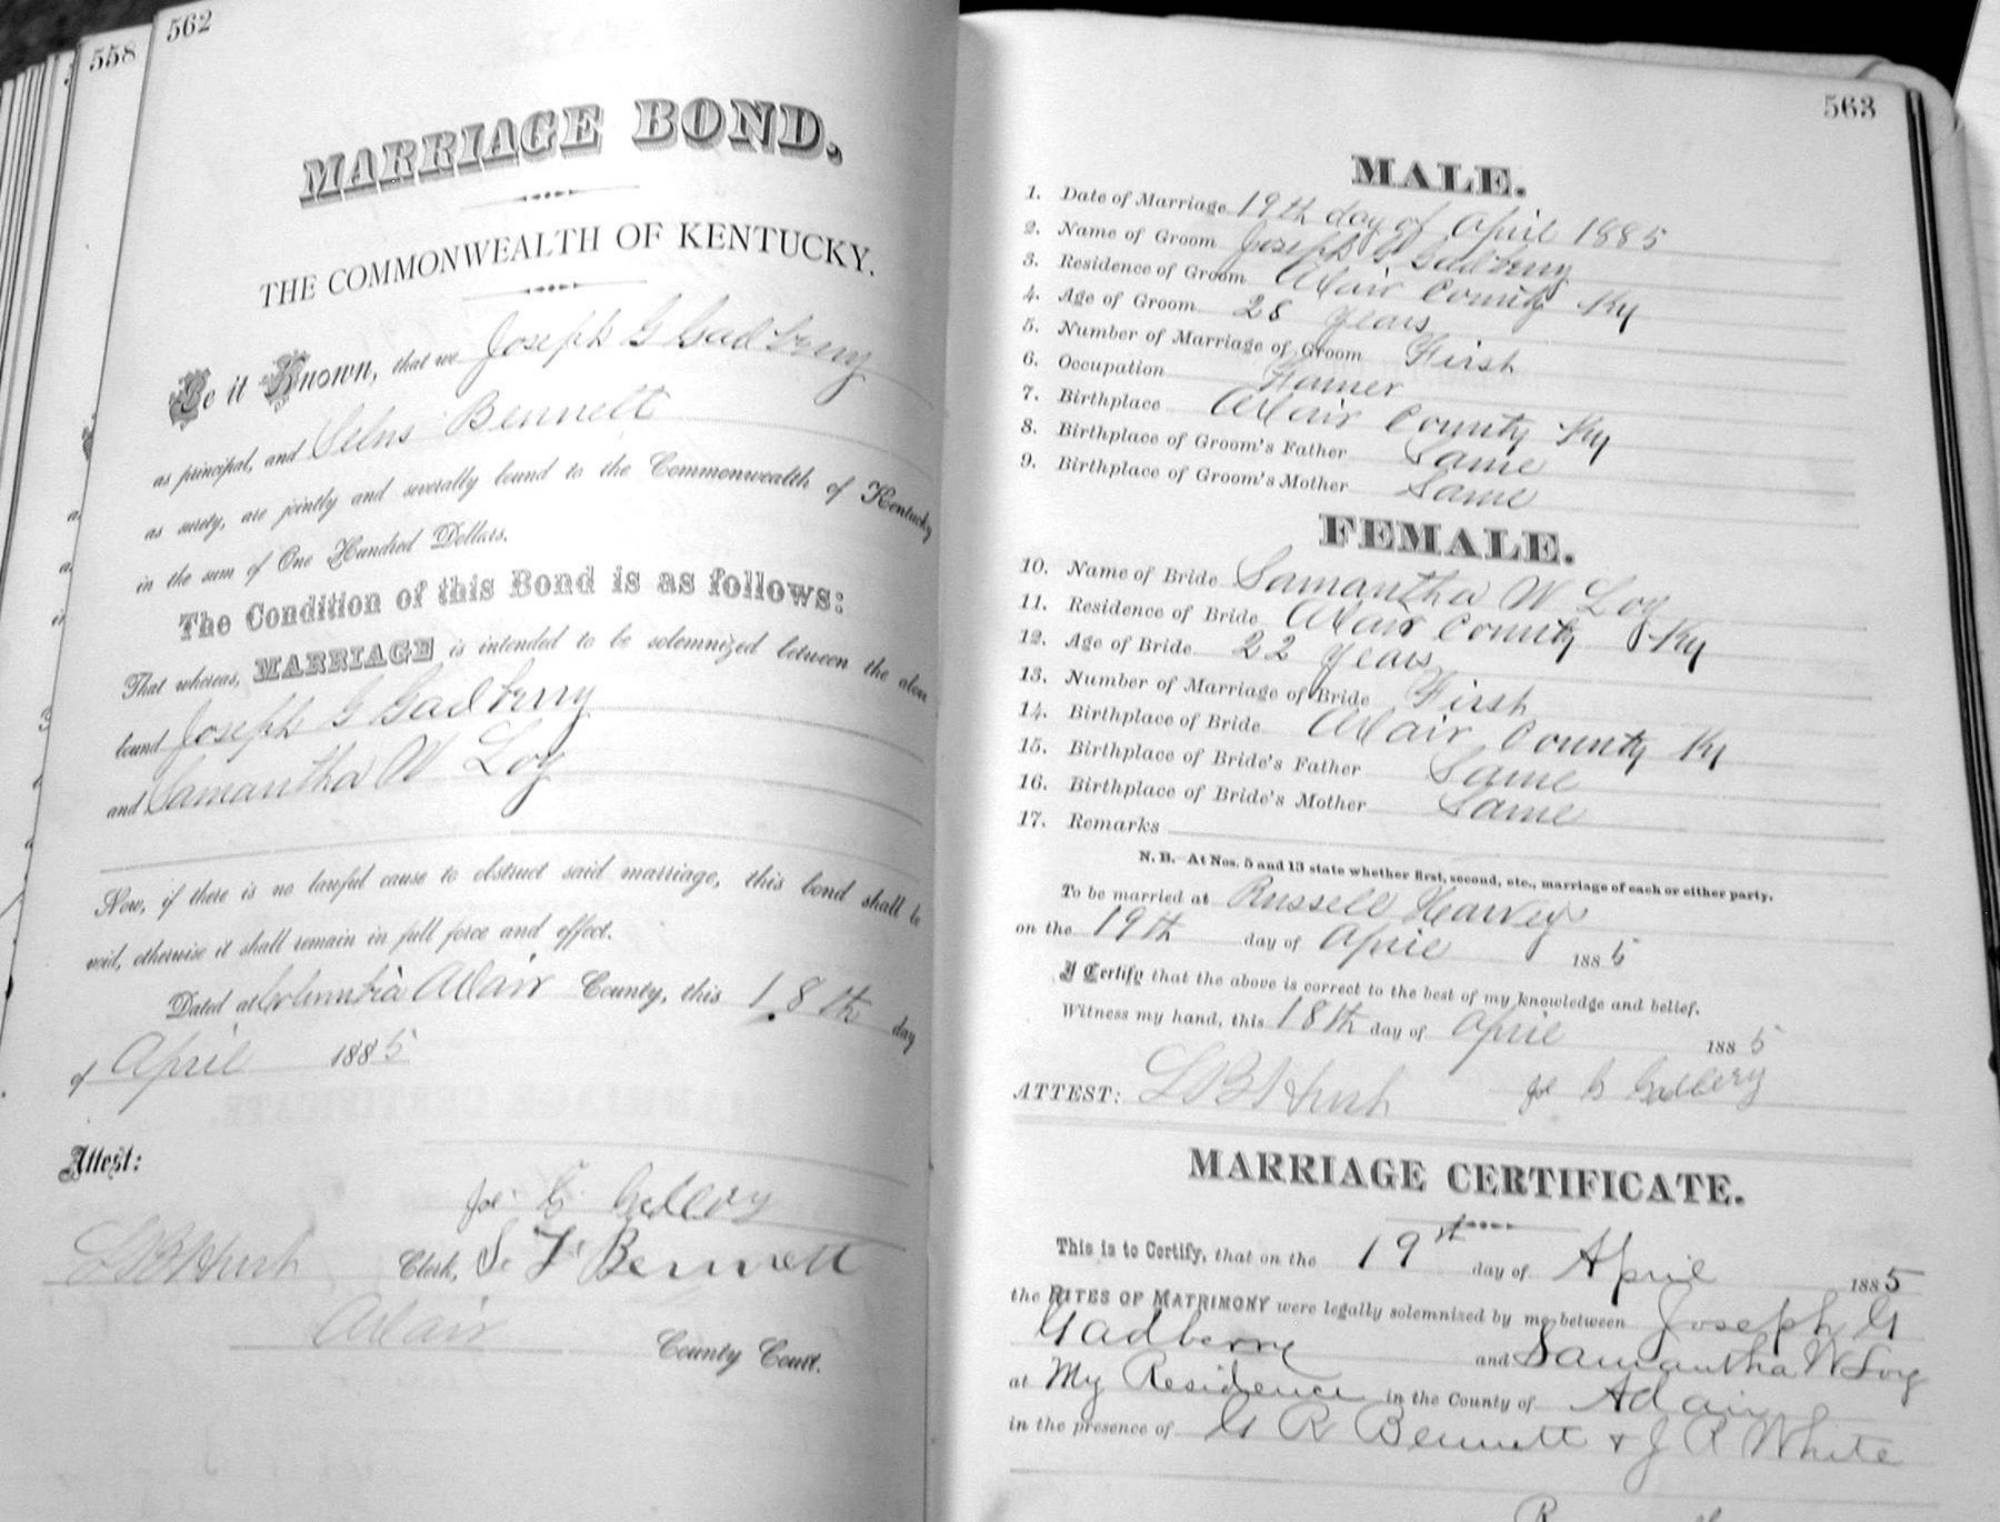 562
558
MARRIAGE BOND.
THE COMMONWEALTH OF KENTUCKY.
Be it Known, that we Joseph G Gadberry
as principal, and Bennett
as surety, are jointly and severally bound to the Commonwealth of Kentucky
in the sum of One Hundred Dollars.
The Condition of this Bond is as follows:
That whereas, MARRIAGE is intended to be solemnized between the above
bound Joseph G Gadberry
and Samantha W Loy
Now, if there is no lawful cause to obstruct said marriage, this bond shall be
void, otherwise it shall remain in full force and effect.
Dated at Columbia Adair County, this 18th day
of April 1885
Attest:
Joe G Gadberry
Clerk, S. F. Bennett
Adair County Court.
563
MALE.
1. Date of Marriage 19th day of April 1885
2. Name of Groom Joseph G Gadberry
3. Residence of Groom Adair County Ky
4. Age of Groom 28 years
5. Number of Marriage of Groom First
6. Occupation Famer
7. Birthplace Adair County Ky
8. Birthplace of Groom's Father Same
9. Birthplace of Groom's Mother Same
FEMALE.
10. Name of Bride Samantha W Loy
11. Residence of Bride Adair County Ky
12. Age of Bride 22 years
13. Number of Marriage of Bride First
14. Birthplace of Bride Adair County Ky
15. Birthplace of Bride's Father Same
16. Birthplace of Bride's Mother Same
17. Remarks
N. B.—At Nos. 5 and 13 state whether first, second, etc., marriage of each or either party.
To be married at Russell Harvey
on the 19th day of April 1885
I Certify that the above is correct to the best of my knowledge and belief.
Witness my hand, this 18th day of April 1885
ATTEST: Joe G
MARRIAGE CERTIFICATE.
This is to Certify, that on the 19st day of April 1885
the RITES OF MATRIMONY were legally solemnized by me between Joseph G
Gadberry and Samantha W Loy
at My Residence in the County of Adair
in the presence of G R Bennett & J R White